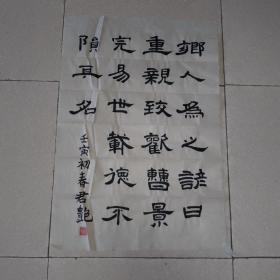 鄉人為之諺曰
重親致歡曹景
完易世載德不
隕其名
壬寅初春君艷